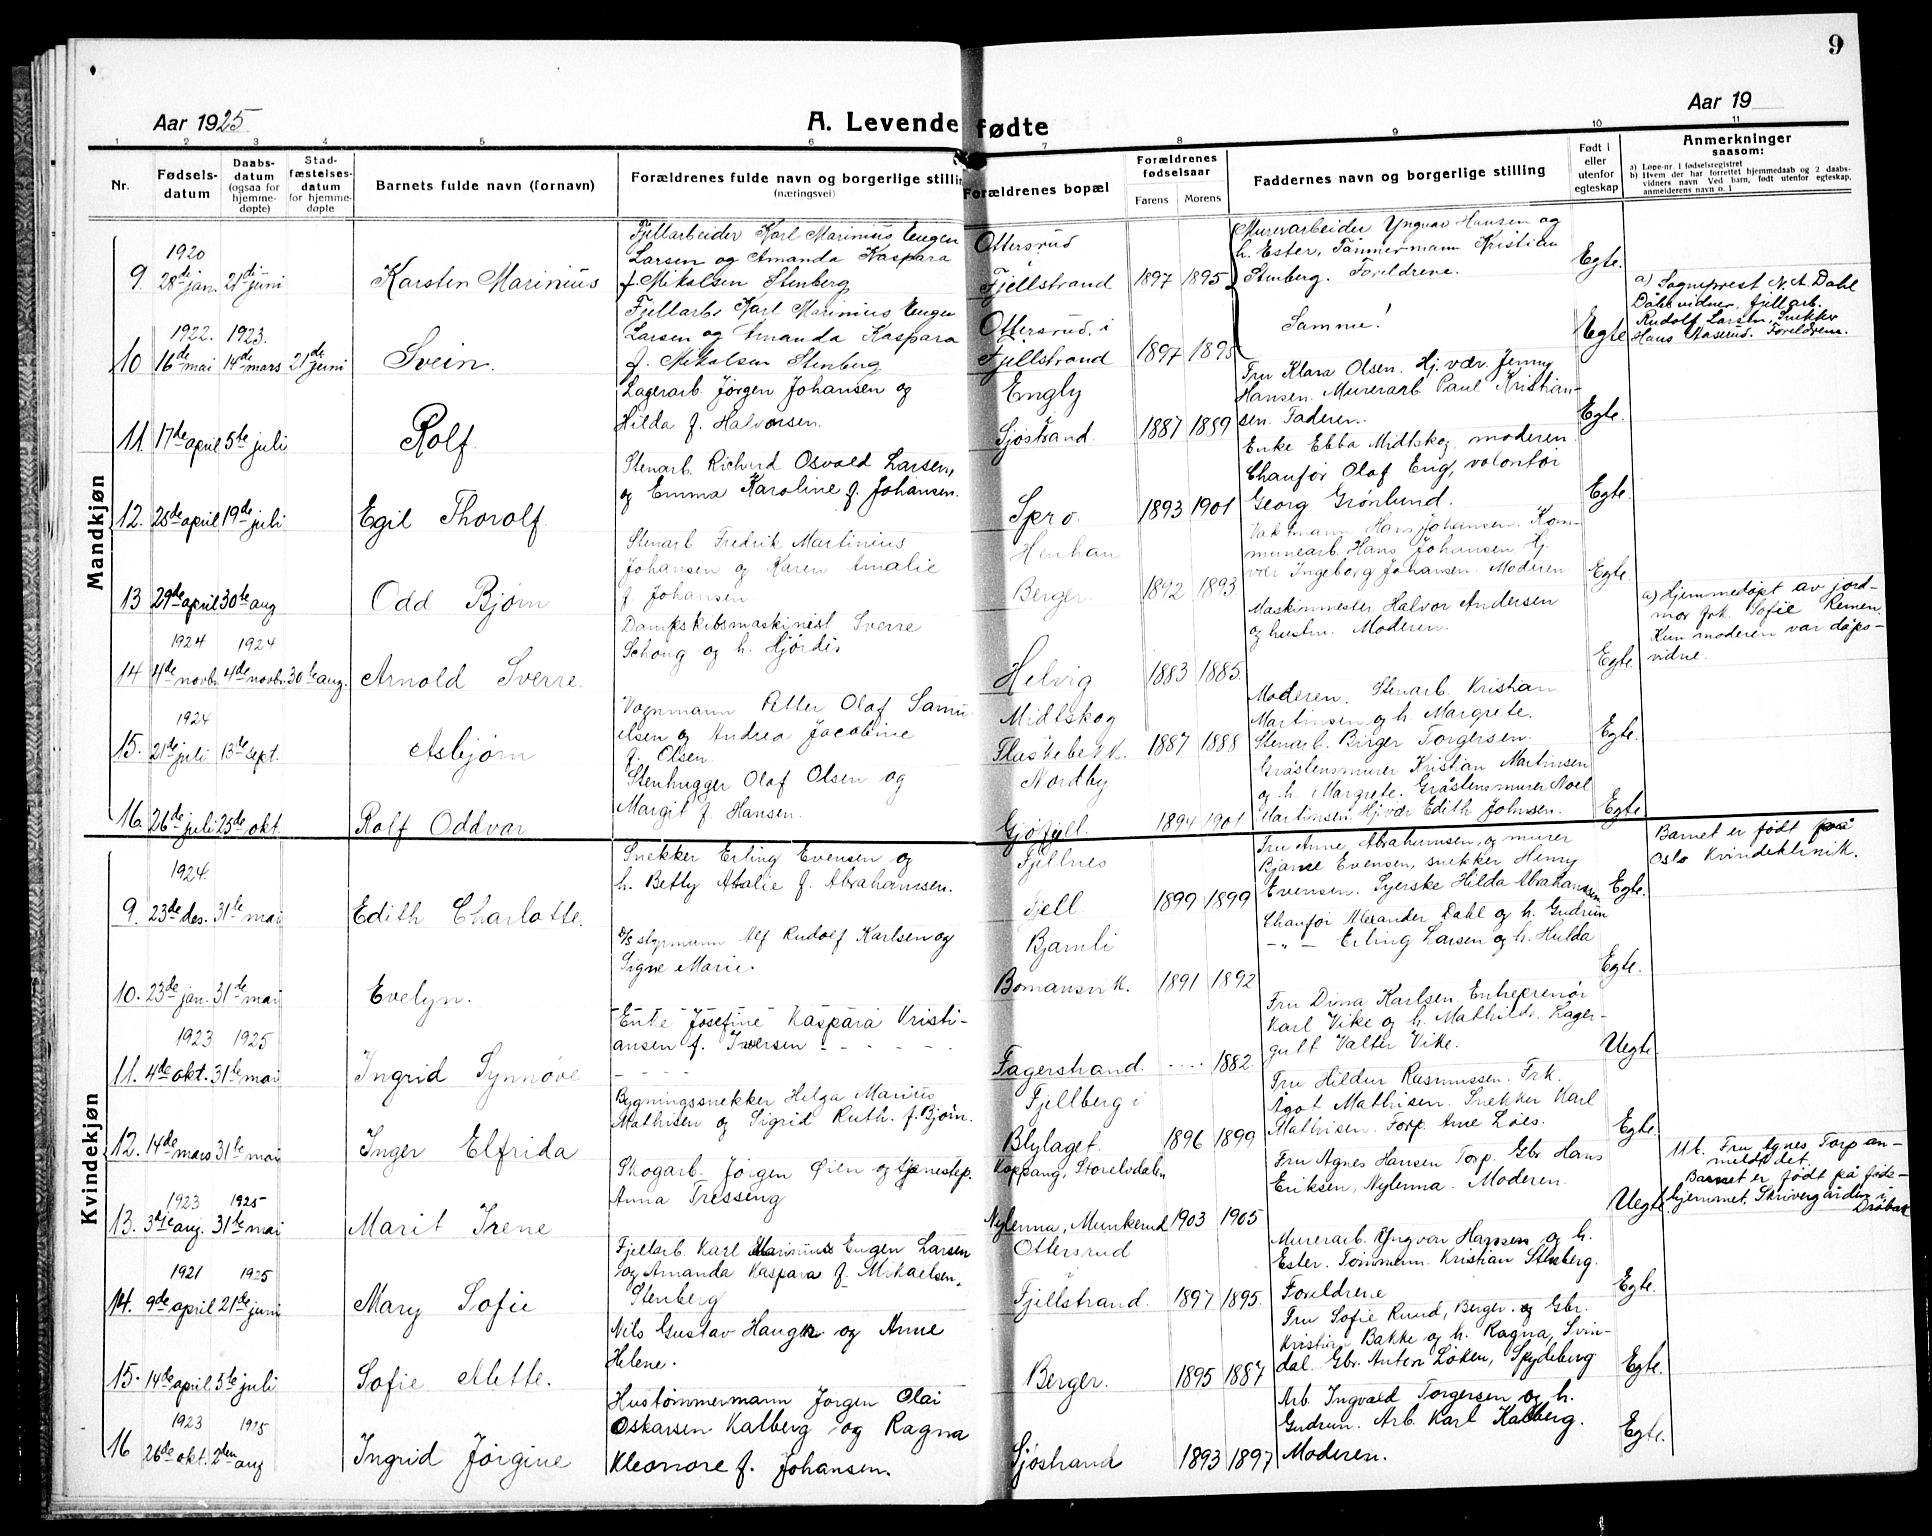 9
Aar 1925
A. Levende fødte
Aar 19
1 2 3 4 5 6 7 8 9 10 11
Nr.
Fødsels-
datum
Daabs-
datum
(ogsaa for
hjemme-
døpte)
Stad-
fæstelses-
datum
for hjemme-
døpte
Barnets fulde navn (fornavn)
Forældrenes fulde navn og borgerlige stilling
(næringsvei)
Forældrenes bopæl
Forældrenes
fødselsaar
Farens Morens
Faddernes navn og borgerlige stilling
Født i
eller
utenfor
egteskap
Anmerkninger
saasom:
a) Løpe-nr. i fødselsregistret
b) Hvem der har forrettet hjemmedaab og 2 daabs-
vidners navn Ved barn, født utenfor egteskap,
anmelderens navn o. l
Mandkjøn
9.
1920
28de jan.
21de juni
Karsten Marinius
Fjellarbeider Karl Marinius Eugen
Larsen og Amanda Kaspara
f. Mikalsen Stenberg
Ottersrud
Fjellstrand
1897 1895
Murerarbeider Yngvar Hansen og
h. Ester, Tømmermann Kristian
Stenberg. Foreldrene.
Egte.
10
1922.
16de mai
1923.
14de mars
21de juni
Svein.
Fjellarb. Karl Marinius Eugen
Larsen og Amanda Kaspara
f. Mikalsen Stenberg
Ottersrud. i
Fjellstrand
1897 1895
Samme!
Egte
a) Sogneprest N. A. Dahl
Dåbsvidner. fjellarb.
Rudolf Larsen, Snekker
Hans Aaserud. Foreldrene.
11.
17de april
5te juli
Rolf
Lagerarb Jørgen Johansen og
Hilda f. Halvorsen.
Engly
i
Sjøstrand.
1887 1889
Fru Klara Olsen. Hj. vær Jenny
Hansen. Murerarb Paul Kristian-
sen. Faderen.
Egte.
12.
25de april
19de juli
Egil Thorolf.
Stenarb. Richard Osvald Larsen,
og Emma Karoline f. Johansen.
Spro.
1893 1901
Enke Ebba Midtskog, moderen.
Chauffør Olaf Eng, volontør
Georg Grønlund.
Egte.
13
29de april
30te aug
Odd Bjørn
Stenarb Fredrik Martinius
Johansen og Karen Amalie
f. Johansen
Berger.
1892 1893
Vaktmann Hans Johansen. Kom-
munearb. Hans Johansen, Hj.
vær Ingeborg Johansen. Moderen
Egte.
14
1924
4de novbr.
1924
4de novbr.
30te aug.
Arnold Sverre.
Dampskibsmaskinist Sverre
Schong og h. Hjørdis
Helvig
1883 1885.
Maskinmester Halvor Andersen
og hustru. Moderen.
Egte.
a) Hjemmedøpt av jord-
mor frk. Sofie Remen.
Kun moderen var dåps-
vidne.
15.
1924
21de juli
13de sept.
Asbjørn
Vognmann Petter Olaf Samu-
elsen og Andrea Jacobine
f. Olsen.
Midtskog
Flaskebekk.
1887 1888
Moderen. Stenarb. Kristian
Martinsen og h. Margrete.
Stenarb. Birger Torgersen.
Egte.
16.
26de juli
25de okt.
Rolf Oddvar
Stenhugger Olaf Olsen og
Margit f. Hansen.
Nordby
Gjøfjell.
1894 1901
Gråstensmurer Kristian Martinsen
og h. Margrete. Gråstensmurer Noel
Martinsen. Hj. vær Edith Johnsen.
Egte
Kvindekjøn
9.
1924.
23de des.
31te mai
Edith Charlotte.
Snekker Erling Evensen og
h. Betly Atalie f. Abrahamsen.
Fjellnes
Fjell
1899 1899
Fru Anne Abrahamsen, og murer
Bjarne Evensen, snekker Henry
Evensen. Syerske Hilda Abrahamsen.
Egte.
Barnet er født på
Oslo Kvindeklinik.
10.
23de jan.
31te mai
Evelyn.
D/S styrmann Alf Rudolf Karlsen og
Signe Marie.
Bjamli
Bomansvik.
1891 1892
Chauffør Alexander Dahl og h. Gudrun
— „ — Erling Larsen og h. Hulda
Egte.
11.
1923
4de okt.
1925
31te mai
Ingrid Synnøve
Enke Josefine Kaspara Kristi-
ansen f. Iversen - - - - -
- - - -
Fagerstrand.
.... 1882
Fru Dina Karlsen. Entreprenør
Karl Vike og h. Mathilde. Lager-
gutt Valter Vike.
Uegte.
12.
14de mars
31te mai
Inger Elfrida
Bygningssnekker Helga Marius
Mathisen og Sigrid Ruth. f. Bjørn.
Fjellberg i
Blylaget.
1896 1899
Fru Hildur Rasmussen. Frk.
Ågot Mathisen. Snekker Karl
Mathisen. Forp. Arne Løes.
Egte.
13.
1923
3dje aug.
1925
31te mai
Marit Irene
Skogarb. Jørgen Øien og tjenestep.
Anna Tresseng
Koppang, Storelvdalen
Nylenna, Munkerud
1903 1905
Fru Agnes Hansen Torp. Gbr Hans
Eriksen, Nylenna. Moderen.
Uegte
11 t. Fru Agnes Torp an-
meldt det.
Barnet er født på føde-
hjemmet, Skrivergården i
Drøbak
14.
1921
9de april
1925
21de juni
Mary Sofie
Fjellarb. Karl Marinius Eugen Larsen
og Amanda Kaspara f. Mikaelsen.
Stenberg
Ottersrud
i
Fjellstrand.
1897 1895.
Murerarb. Yngvar Hanssen og h.
Ester. Tømmerm. Kristian Stenberg.
Foreldrene
Egte.
15.
14de april
5te juli
Sofie Alette.
Nils Gustav Haugen og Anne
Helene.
Berger.
1895 1887
Fru Sofie Ruud, Berger. og Gbr.
Kristian Bakke og h. Ragna, Svin-
dal. Gbr. Anton Løken, Spydeberg
Egte.
16
1923
26de okt.
1925
2den aug
Ingrid Jørgine
Hustømmermann Jørgen Olai
Oskarsen Kalberg og Ragna
Kleonore f. Johansen.
Sjøstrand
1893 1897
Arb Ingvald Torgersen og h.
Gudrun. Arb. Karl Kalberg.
Moderen.
Egte.